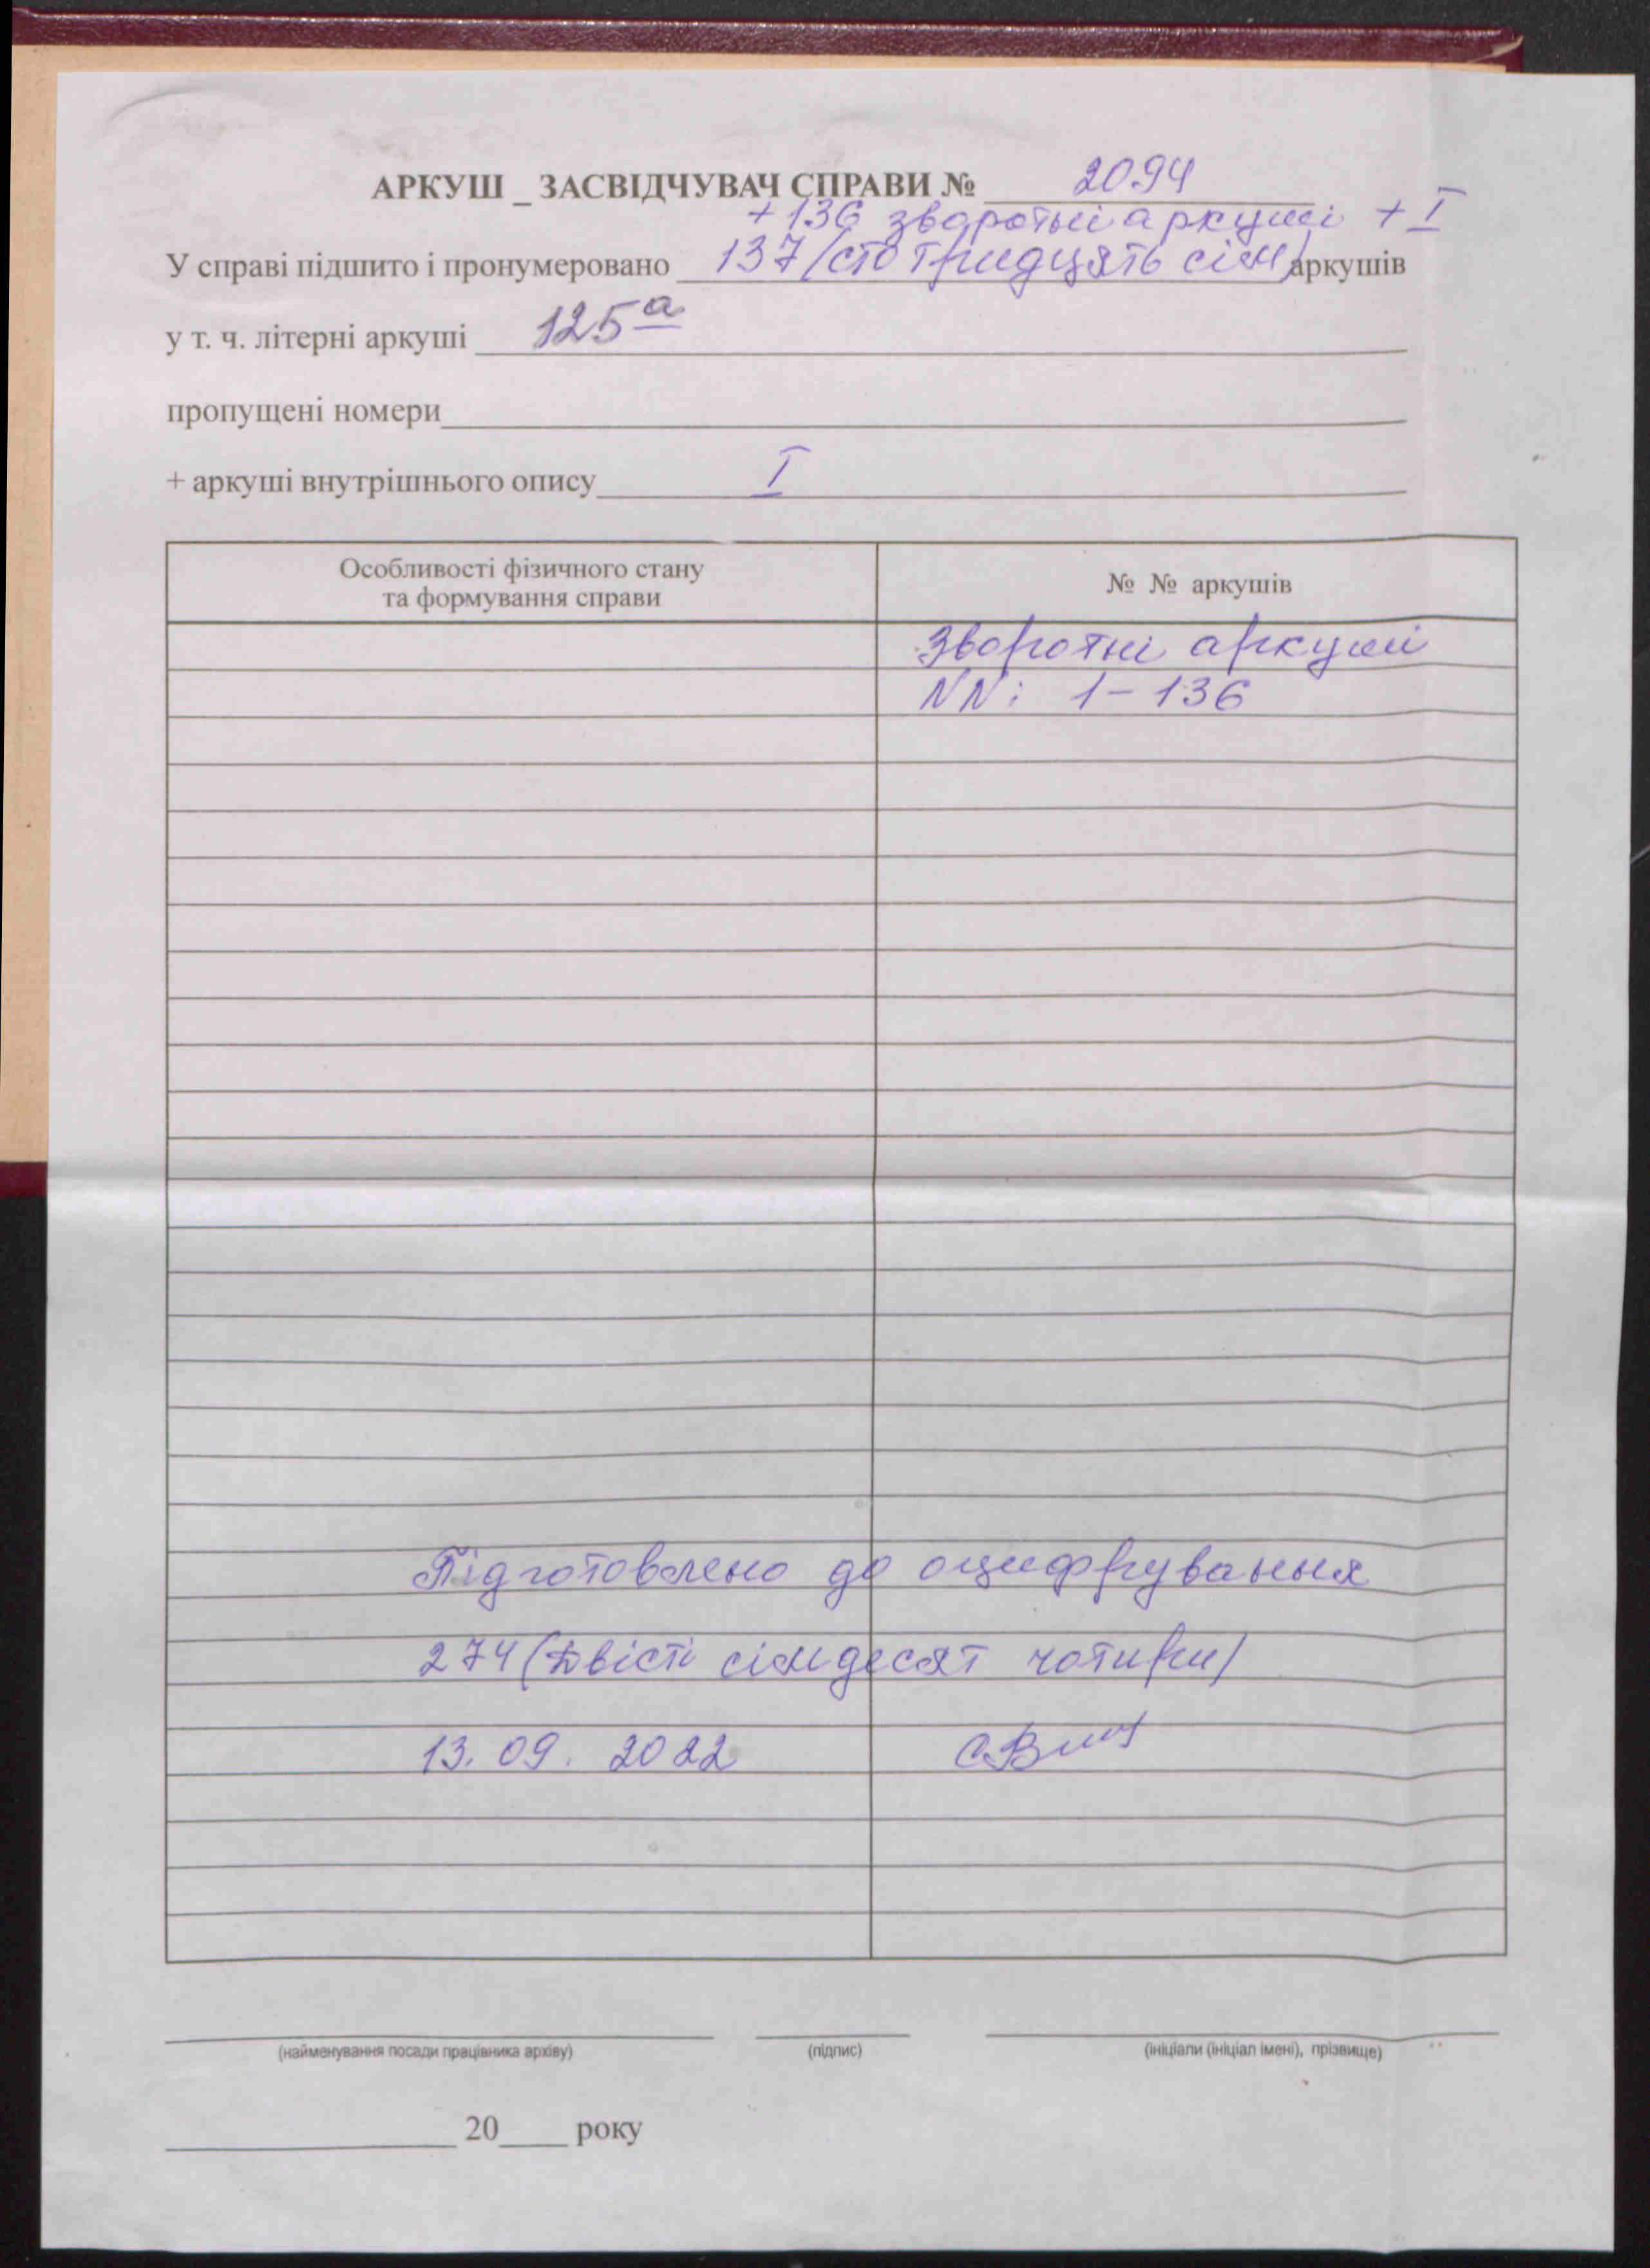 АРКУШ _ ЗАСВІДЧУВАЧ СПРАВИ № 2094
+ 136 зворотні аркуші + I
У справі підшито і пронумеровано 137 (сто тридцять сім) аркушів
у т. ч. літерні аркуші 125а
пропущені номери
+ аркуші внутрішнього опису I
Особливості фізичного стану
та формування справи
№ № аркушів
Зворотні аркуші
NN: 1-136
Підготовлено до оцифрування
274 (Двісті сімдесят чотири)
13.09.2022
(найменування посади працівника архіву) (підпис) (ініціали (ініціал імені), прізвище)
20 року